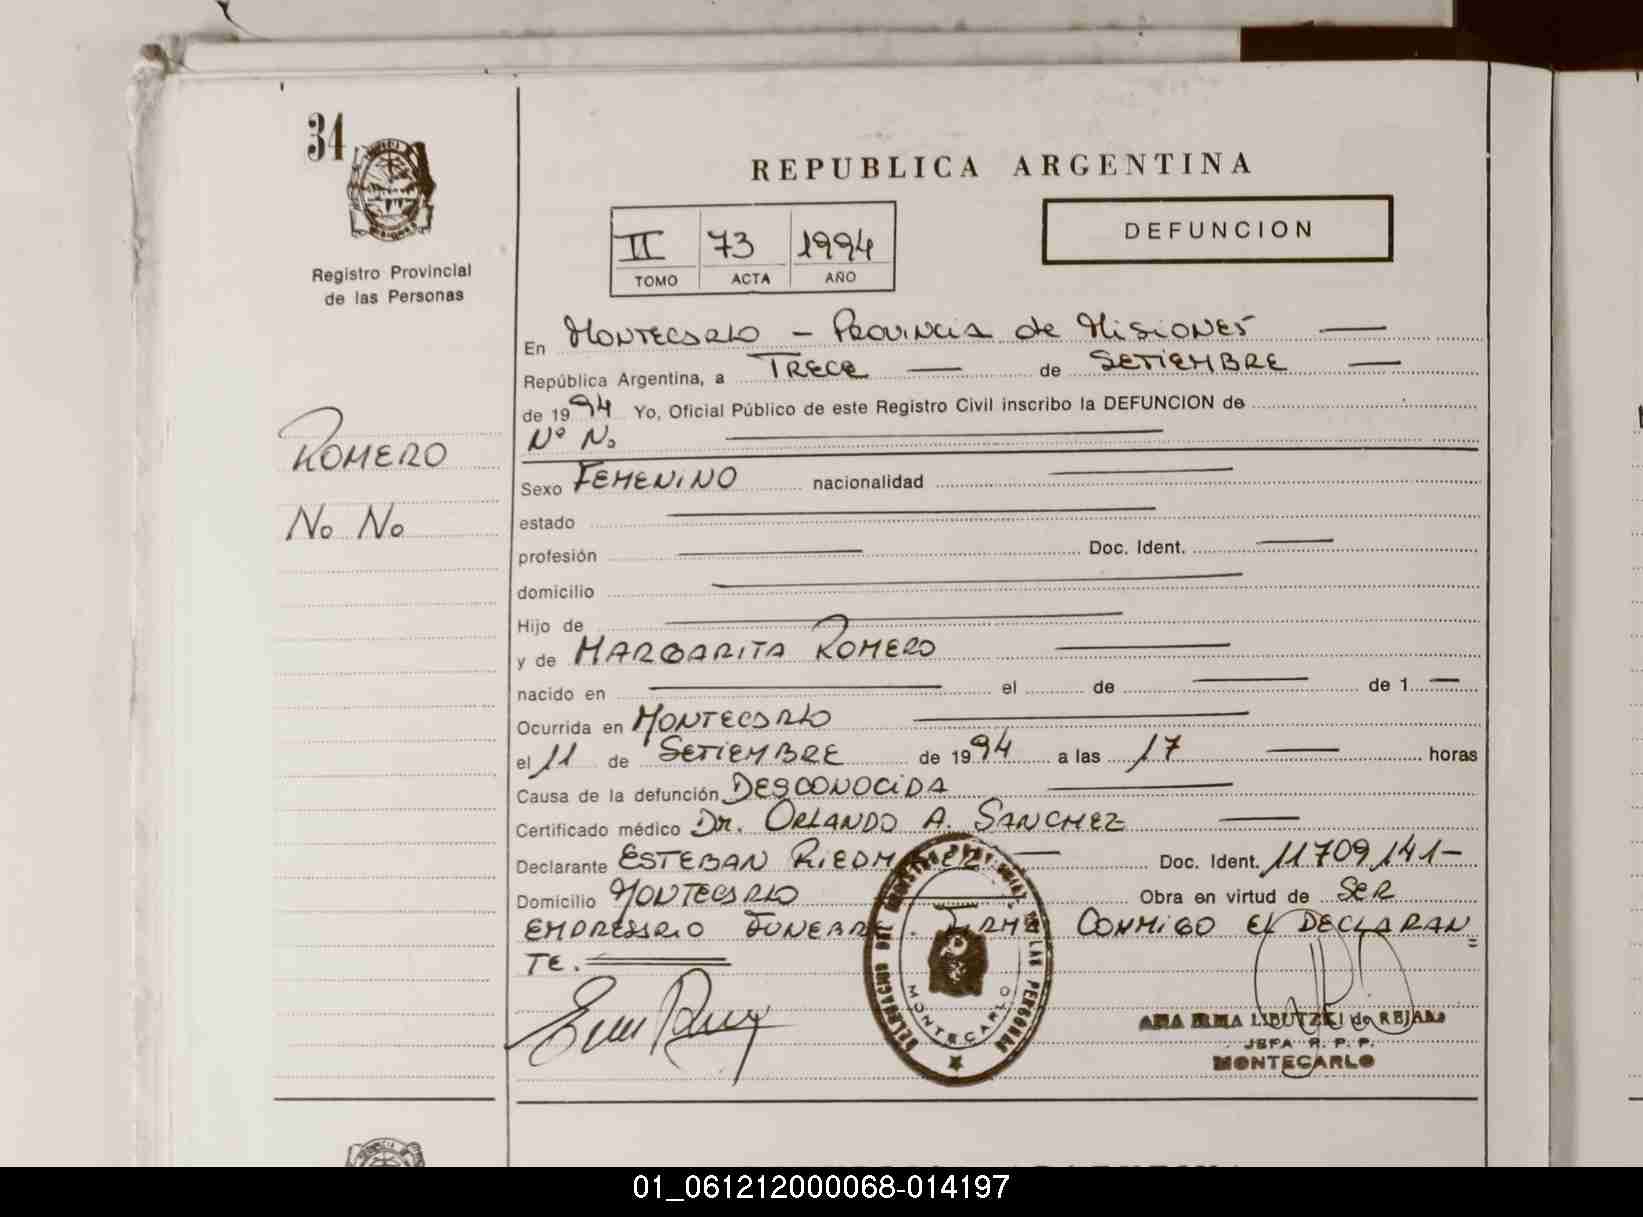 34
Registro Provincial
de las Personas
ROMERO
No No
REPUBLICA ARGENTINA
DEFUNCION
II 73 1994
TOMO ACTA AÑO
En MONTECARLO - PROVINCIA de MISIONES
República Argentina, a TRECE de SETIEMBRE
de 1994 Yo, Oficial Público de este Registro Civil inscribo la DEFUNCION de
Nº No
Sexo FEMENINO nacionalidad
estado
profesión Doc. Ident.
domicilio
Hijo de
y de MARGARITA ROMERO
nacido en el de de 1
Ocurrida en MONTECARLO
el 11 de SETIEMBRE de 1994 a las 17 horas
Causa de la defunción DESCONOCIDA
Certificado médico Dr. ORLANDO A. SANCHEZ
Declarante ESTEBAN Doc. Ident. 11709141-
Domicilio MONTECARLO Obra en virtud de SER
EMPRESARIO FUNEBRE. FIRMA CONMIGO EL DECLARAN=
TE.
DELEGACION DEL REGISTRO PROVINCIAL DE LAS PERSONAS
MONTECARLO
ANA IRMA LIBUTZKI de REJALA
JEFA R. P. P.
MONTECARLO
01_061212000068-014197